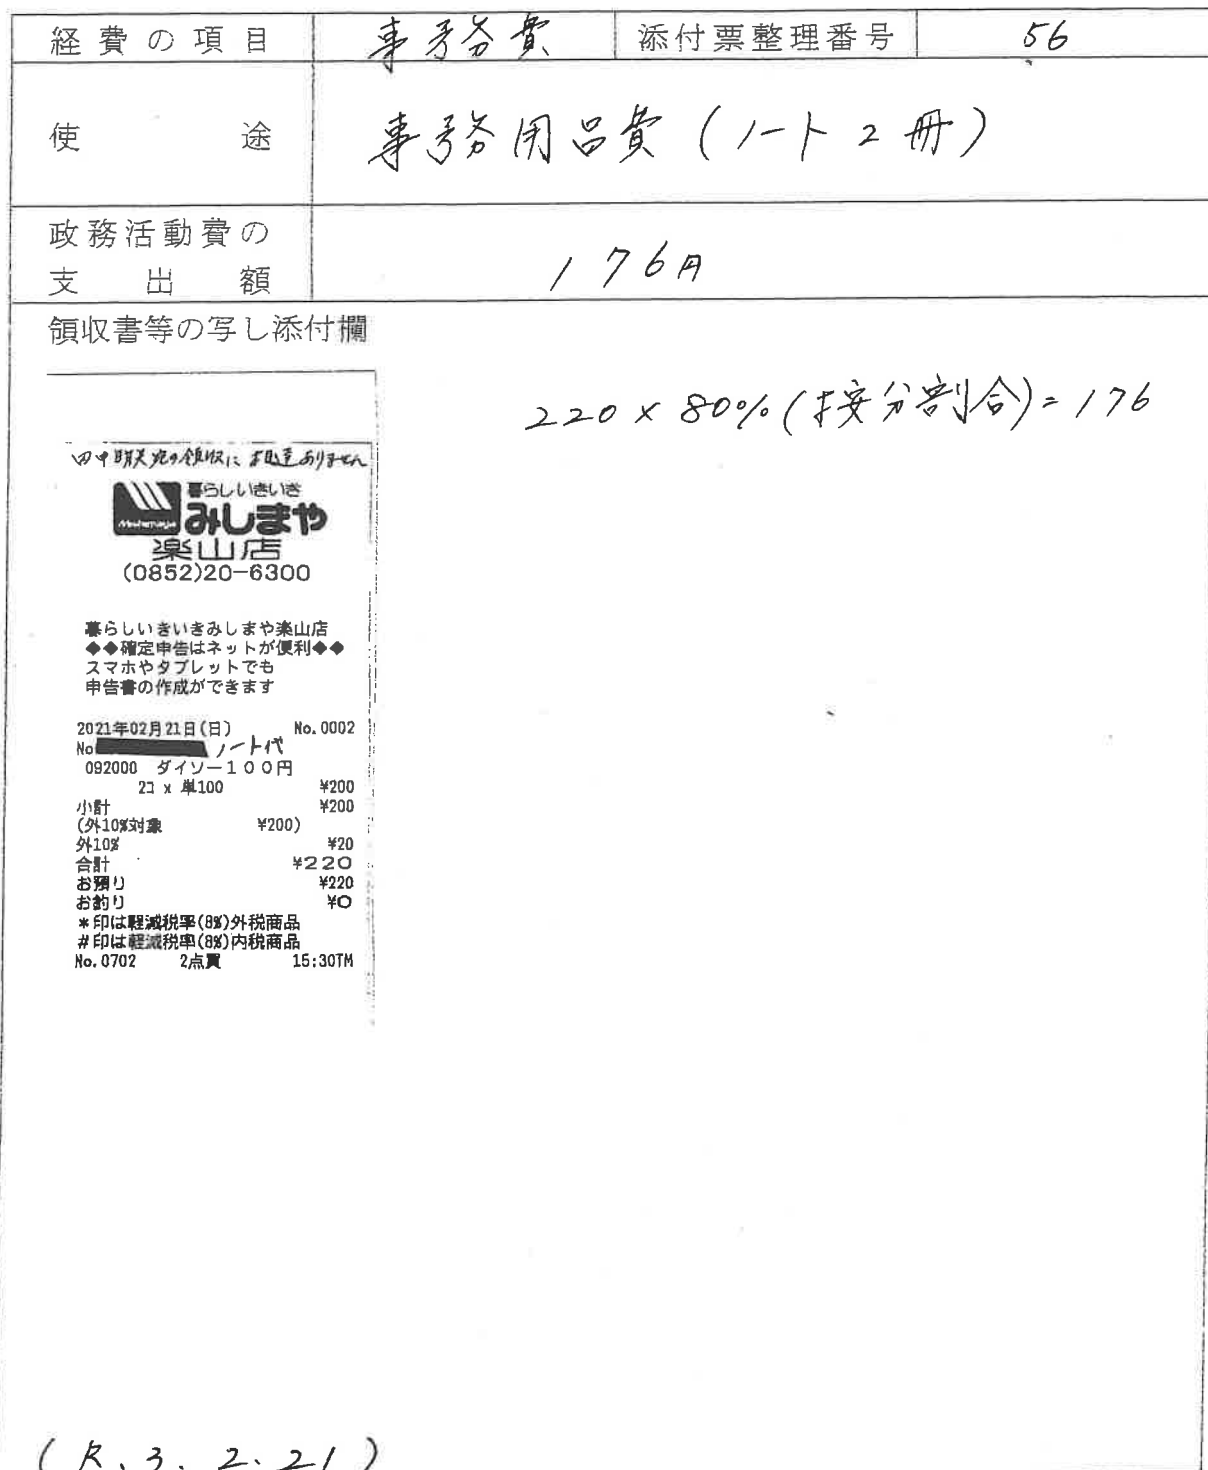 経費の項目 事務費 添付票整理番号 56
使途 事務用品費(ノート2冊)
政務活動費の
支出額 176円
領収書等の写し添付欄
220×80%(按分割合)=176
田中明美宛の領収に相違ありません
暮らしいきいき
みしまや
楽山店
(0852)20-6300
暮らしいきいきみしまや楽山店
◆◆確定申告はネットが便利◆◆
スマホやタブレットでも
申告書の作成ができます
2021年02月21日(日) No.0002
No ノート代
092000 ダイソー100円
2コ x 単100 ¥200
小計 ¥200
(外10%対象 ¥200)
外10% ¥20
合計 ¥220
お預り ¥220
お釣り ¥0
*印は軽減税率(8%)外税商品
#印は軽減税率(8%)内税商品
No.0702 2点買 15:30TM
(R.3.2.21)